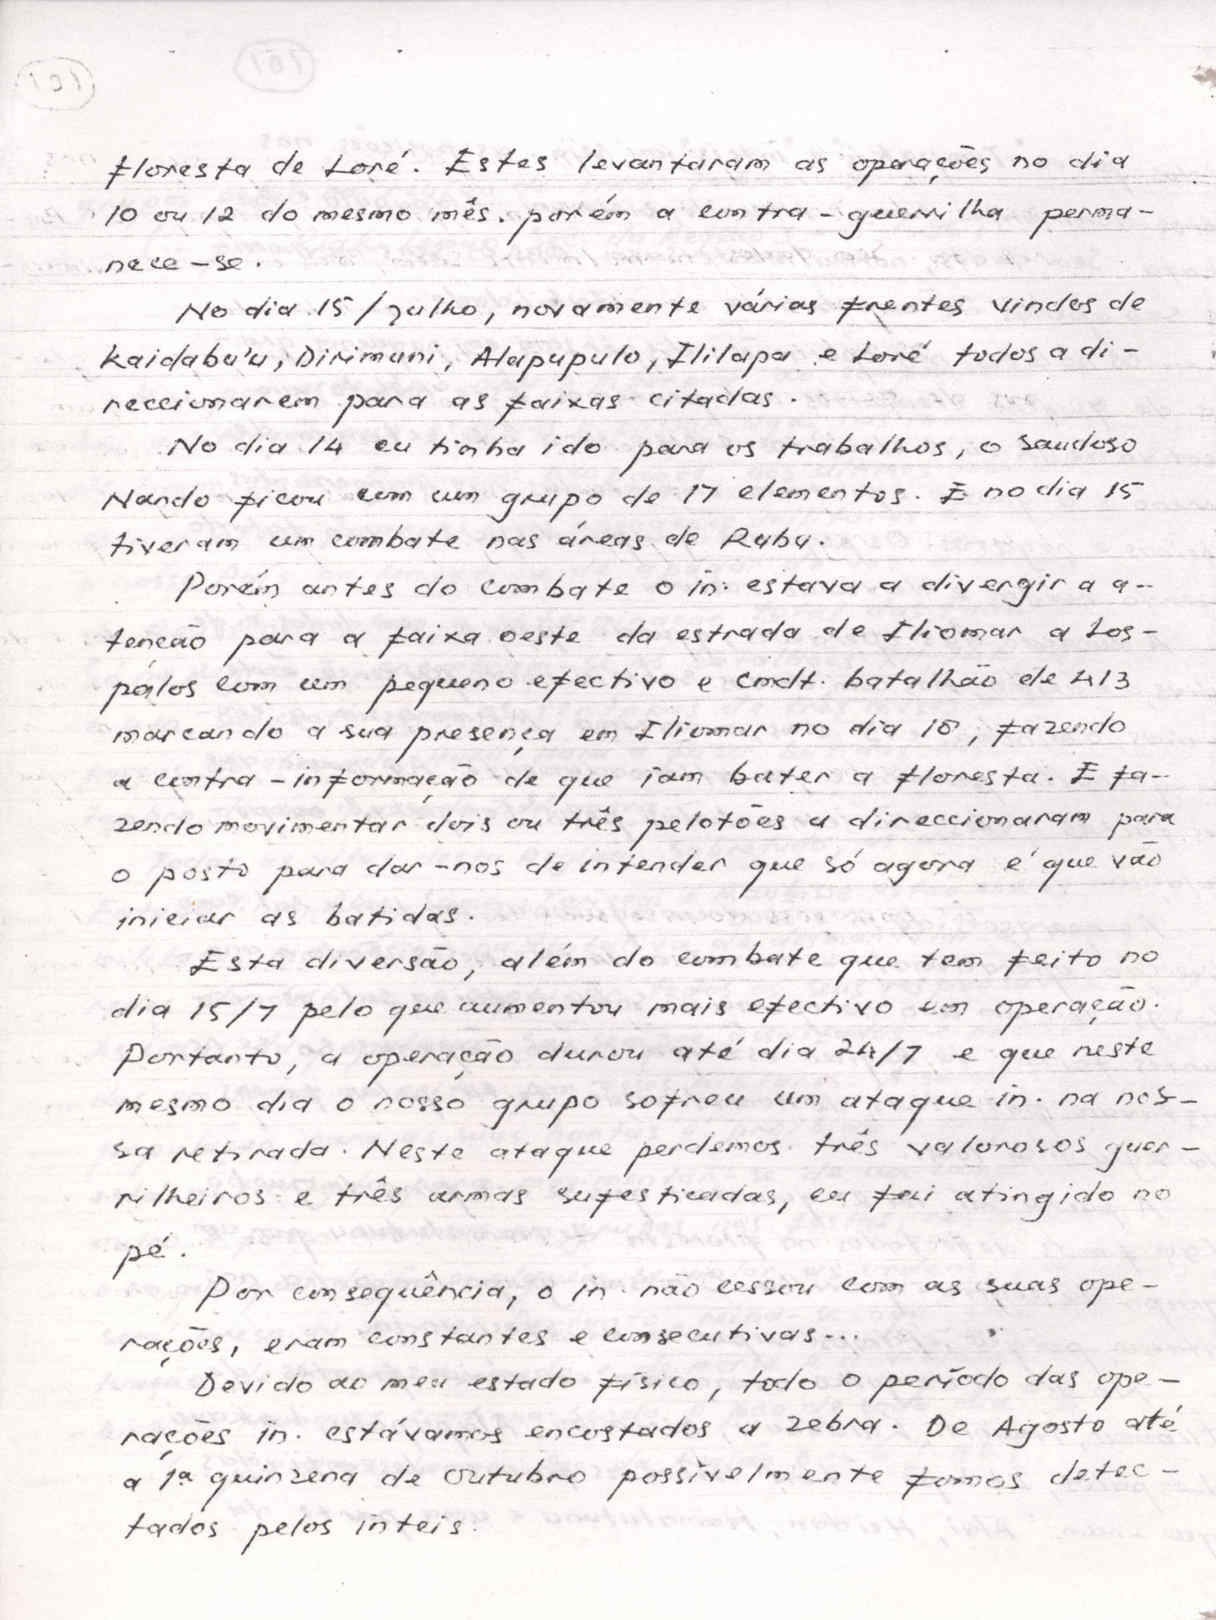 101
floresta de Loré. Estes levantaram as operações no dia
10 ou 12 do mesmo mês. porém a contra-guerrilha perma-
nece-se.
No dia 15/julho, novamente várias frentes vindos de
Kaidabu'u, Dirimuni, Alapupulo, Ililapa e Loré todos a di-
reccionarem para as faixas citadas.
No dia 14 eu tinha ido para os trabalhos, o saudoso
Nando ficou com um grupo de 17 elementos. E no dia 15
tiveram um combate nas áreas de Rubu.
Porém antes do combate o in. estava a divergir a a-
tencão para a faixa oeste da estrada de Iliomar a Los-
pálos com um pequeno efectivo e Cmdt. batalhão de 413
marcando a sua presença em Iliomar no dia 10, fazendo
a contra-informação de que iam bater a floresta. E fa-
zendo movimentar dois ou três pelotões a direccionaram para
o posto para dar-nos de intender que só agora é que vão
iniciar as batidas.
Esta diversão, além do combate que tem feito no
dia 15/7 pelo que aumentou mais efectivo em operação.
Portanto, a operação durou até dia 24/7 e que neste
mesmo dia o nosso grupo sofreu um ataque in. na nos-
sa retirada. Neste ataque perdemos três valorosos guer-
rilheiros e três armas sufesticadas, eu fui atingido no
pé.
Por consequência, o in não cessou com as suas ope-
rações, eram constantes e consecutivas...
Devido ao meu estado físico, todo o período das ope-
rações in. estávamos encostados a zebra. De Agosto até
a 1ª quinzena de Outubro possivelmente fomos detec-
tados pelos inteis.